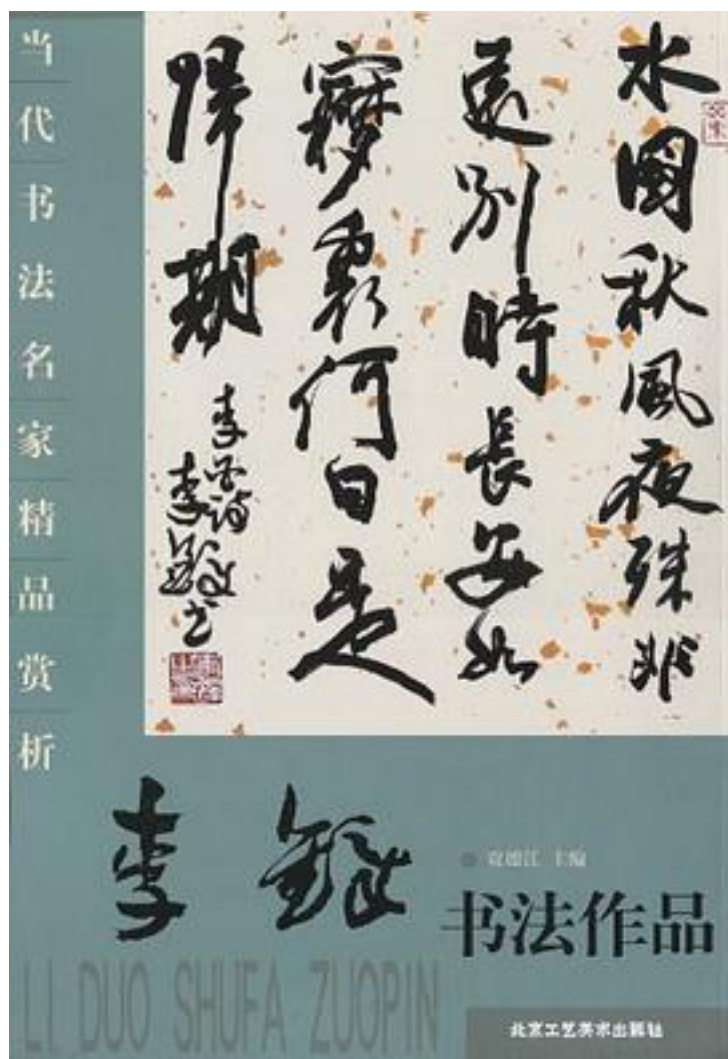 当代书法名家精品赏析
水國秋風夜殊非
遠別時長安如
夢裏何日是
歸期
李白詩
李鐸书
李鐸
贾德江 主编
书法作品
LI DUO SHUFA ZUOPIN
北京工艺美术出版社